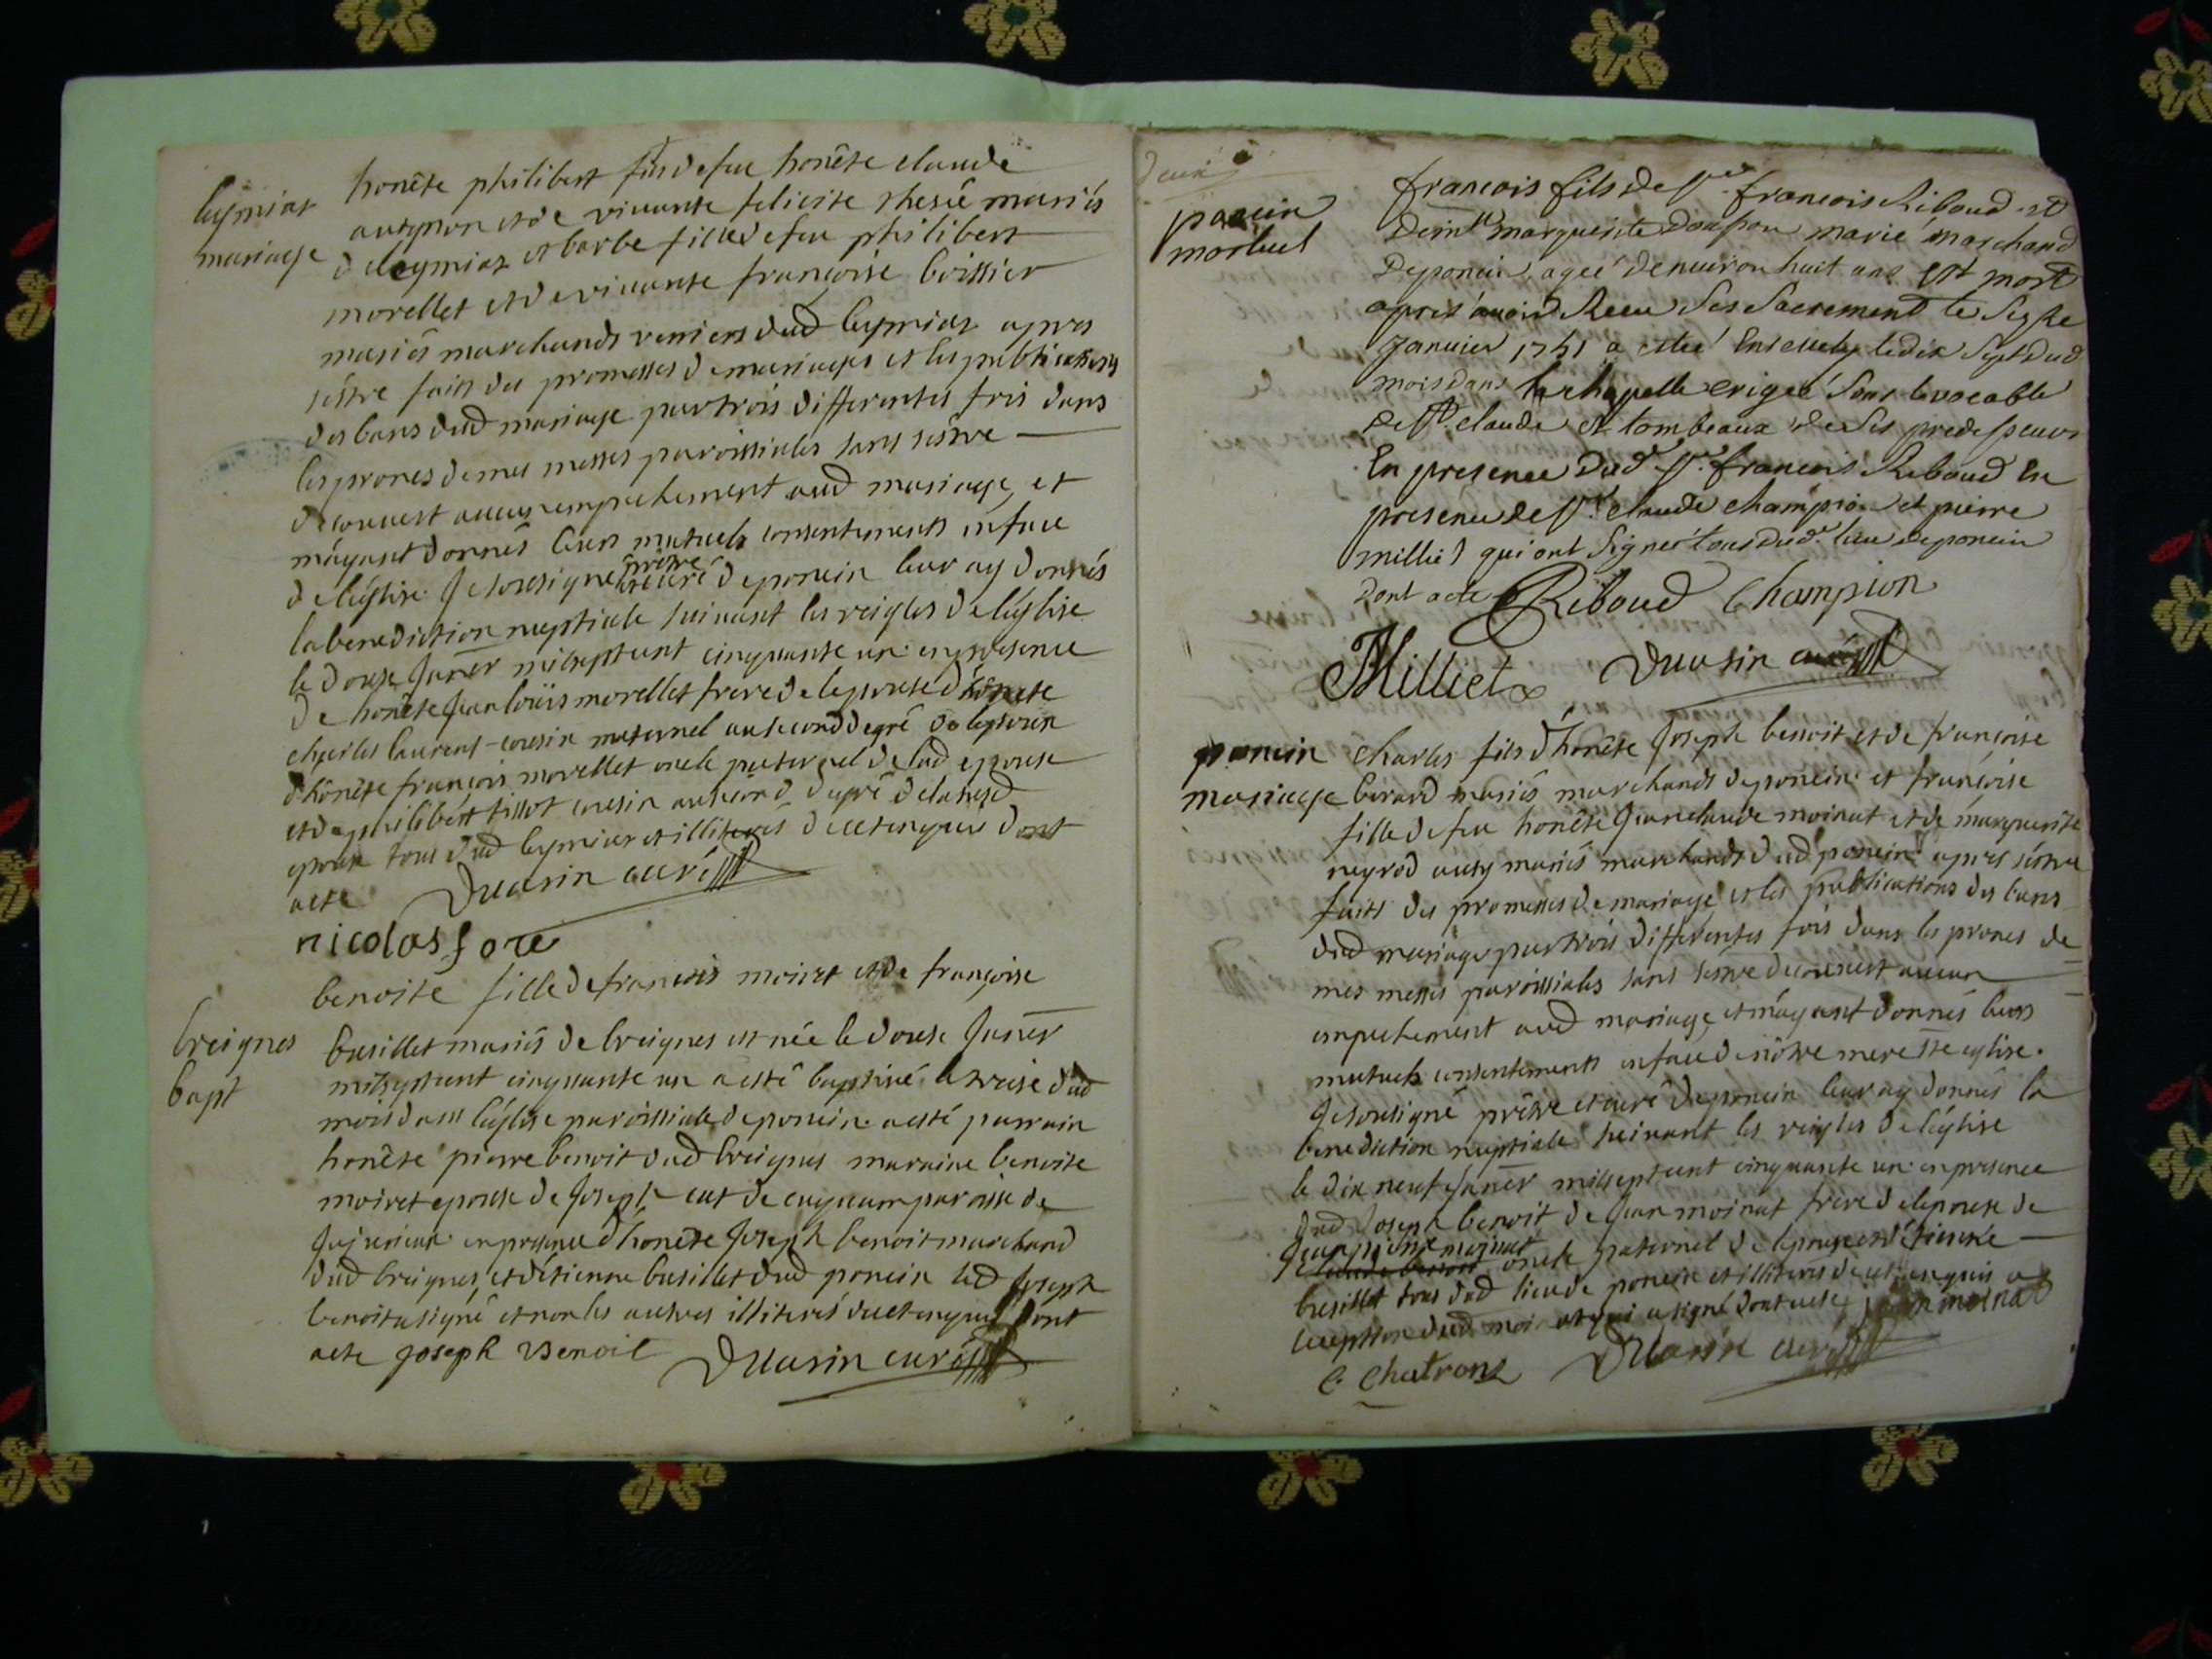 leymiat
mariage
honête philibert fils de feu honête claude
autymon et de vivante felicite thesié mariés
de leymiat et barbe fille de feu philibert
morellet et de vivante françoise boissier
mariés marchands verriers dud leymiat apres
sêstre faits des promesses de mariages et les publications
des bans dud mariage par trois differentes fois dans
les prones de mes messes paroissiales sans sestre
decouvert aucun empechement aud mariage, et
m'ayant donnés leurs mutuels consentements enface
de l'église. Je sousigné prêtre et curé de poncin leur ay donnés
la benediction nuptiale suivant les reigles de l'église
le douse Janer milseptcent cinquante un. en presence
de honête Jean loüis morellet frere de lepouse d'honete
charles laurent cousin maternel au second degré de lepoux
d'honête françois morellet oncle paternel de lad epouse
et de philibert tissot cousin au second degré de lad
epouse tous dud leymiat et illiterés de ce enquis dont
acte Duasin curé
nicolas fore
breignes
bapt
benoite fille de francois moiret et de françoise
busillet mariés de breignes est née le douse Janer
milseptcent cinquante un a esté baptisé le treise dud
mois dans l'église paroissiale de poncin. a esté parrain
honête pierre benoit dud breignes maraine benoite
moiret epouse de Joseph cut de cuqueum paroisse de
Jujurieux en presence d'honête Joseph benoit marchand
dud breignes, et d'étienne busillet dud poncin led Joseph
benoit a signé et non les autres illiterés de ce enquis dont
acte Joseph Benoit Duasin curé
deux
poncin
mortuel
francois fils de Sr. francois Riboud et
Demlle marguerite Donpou marié marchand
De poncin, ageé denuiron huit ans Est mort
apres auoir Receu Ses Sacrement le Seize
Januier 1751 a estée Enseuely le dix Sept dud
mois dans la chapelle erigée Sous le vocable
De St. claude et tombeaux de Ses predesseurs
En presence Dud. Sr. francois Riboud En
presence de Sr. claude champion et pierre
milliet qui ont Signés tous dud. lieu de poncin
Dont acte Riboud Champion
Milliet Duasin curé
poncin
mariage
charles fils d'honête Joseph benoit et de françoise
berard mariés marchands de poncin. et françoise
fille de feu honête Jean claude moinat et de marguerite
negrod aussy mariés marchands dud poncin apres sêstre
faits des promesses de mariage et les publications des bans
dud mariage par trois differentes fois dans les prones de
mes messes paroissiales sans sestre decouvert aucun
empechement aud mariage, et m'ayant donnés leurs
mutuels consentements enface de nôtre mere Ste eglise.
Je sousigné prêtre et curé de poncin leur ay donnés la
benediction nuptiale suivant les reigles de l'église
le dix neuf Janer milseptcent cinquante un. en presence
dud Joseph benoit de Jean moinat frere de lepouse de
Jean pierre moinat oncle paternel de lepouse et d'étienne
busillet tous dud lieu de poncin et illiterés de ce enquis a
lexeption dud moinat qui a signé dont acte. jean moinat
C. Chatrons Duasin curé